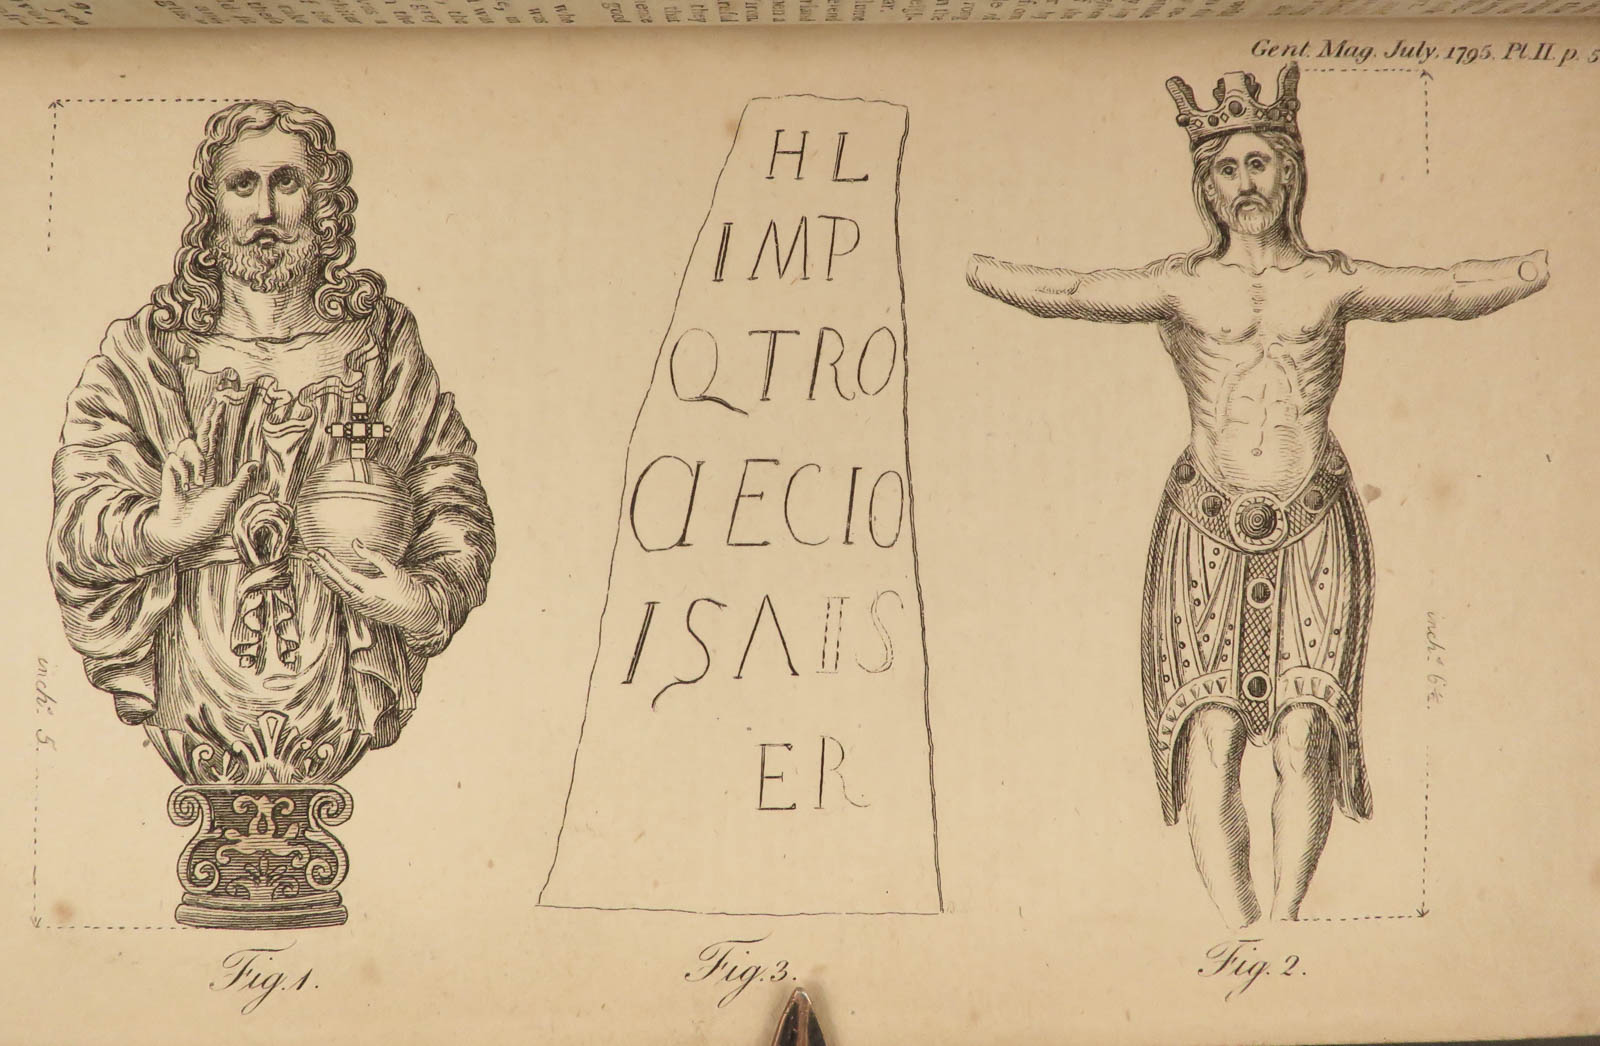 Gent. Mag. July, 1795. Pl. II. p. 5
HL
IMP
QTRO
CIECIO
ISΛIIS
ER
inch.s 5.
inch.s 6½.
Fig. 1.
Fig. 3.
Fig. 2.